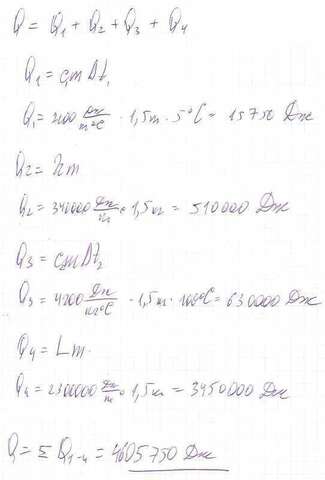 Q = Q₁ + Q₂ + Q₃ + Q₄
Q₁ = c₁mΔt₁
Q₁ = 2100 Дж/кг°C · 1,5кг · 5°C = 15750 Дж
Q₂ = λm
Q₂ = 340000 Дж/кг · 1,5кг = 510000 Дж
Q₃ = c₂mΔt₂
Q₃ = 4200 Дж/кг°C · 1,5кг · 100°C = 630000 Дж
Q₄ = Lm.
Q₄ = 2300000 Дж/кг · 1,5кг = 3450000 Дж
Q = Σ Q₁₋₄ = 4605750 Дж